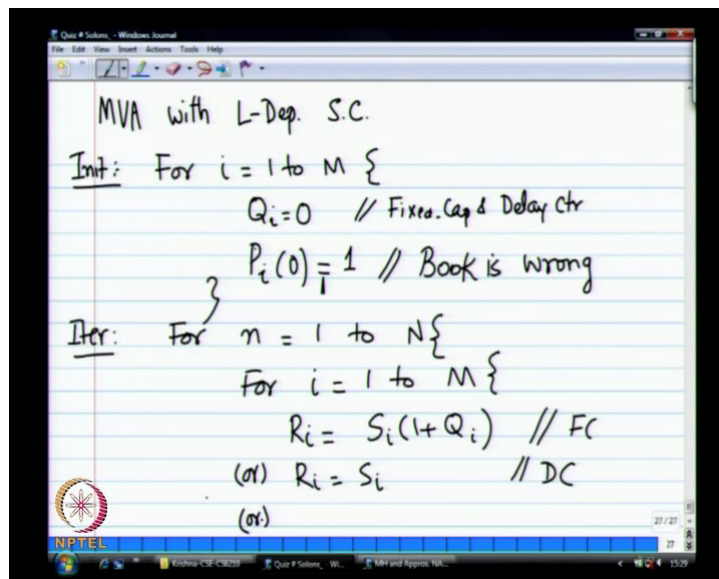 Quiz # Solons_ - Windows Journal
File Edit View Insert Actions Tools Help
MVA with L-Dep. S.C.
Init: For i = 1 to M {
Qi = 0 // Fixed. Cap & Delay Ctr
Pi(0) = 1 // Book is wrong
}
Iter: For n = 1 to N{
For i = 1 to M {
Ri = Si(1+Qi) // FC
(or) Ri = Si // DC
(or)
27 / 27
27
NPTEL
Krishna-CSE-CS6210
Quiz # Solons_ - Wi...
MH and Approx. NA...
15:29